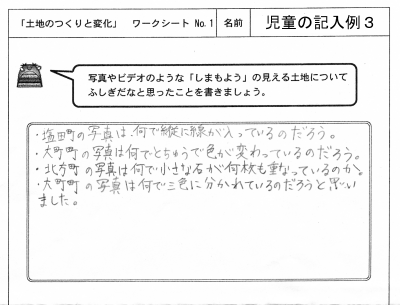 「土地のつくりと変化」 ワークシート No.1 名前 児童の記入例3
写真やビデオのような「しまもよう」の見える土地について
ふしぎだなと思ったことを書きましょう。
・塩田町の写真は、何で縦に線が入っているのだろう。
・大町町の写真は何でとちゅうで色が変わっているのだろう。
・北方町の写真は何で小さな石が何枚も重なっているのか。
・大町町の写真は何で三色に分かれているのだろうと思い
ました。